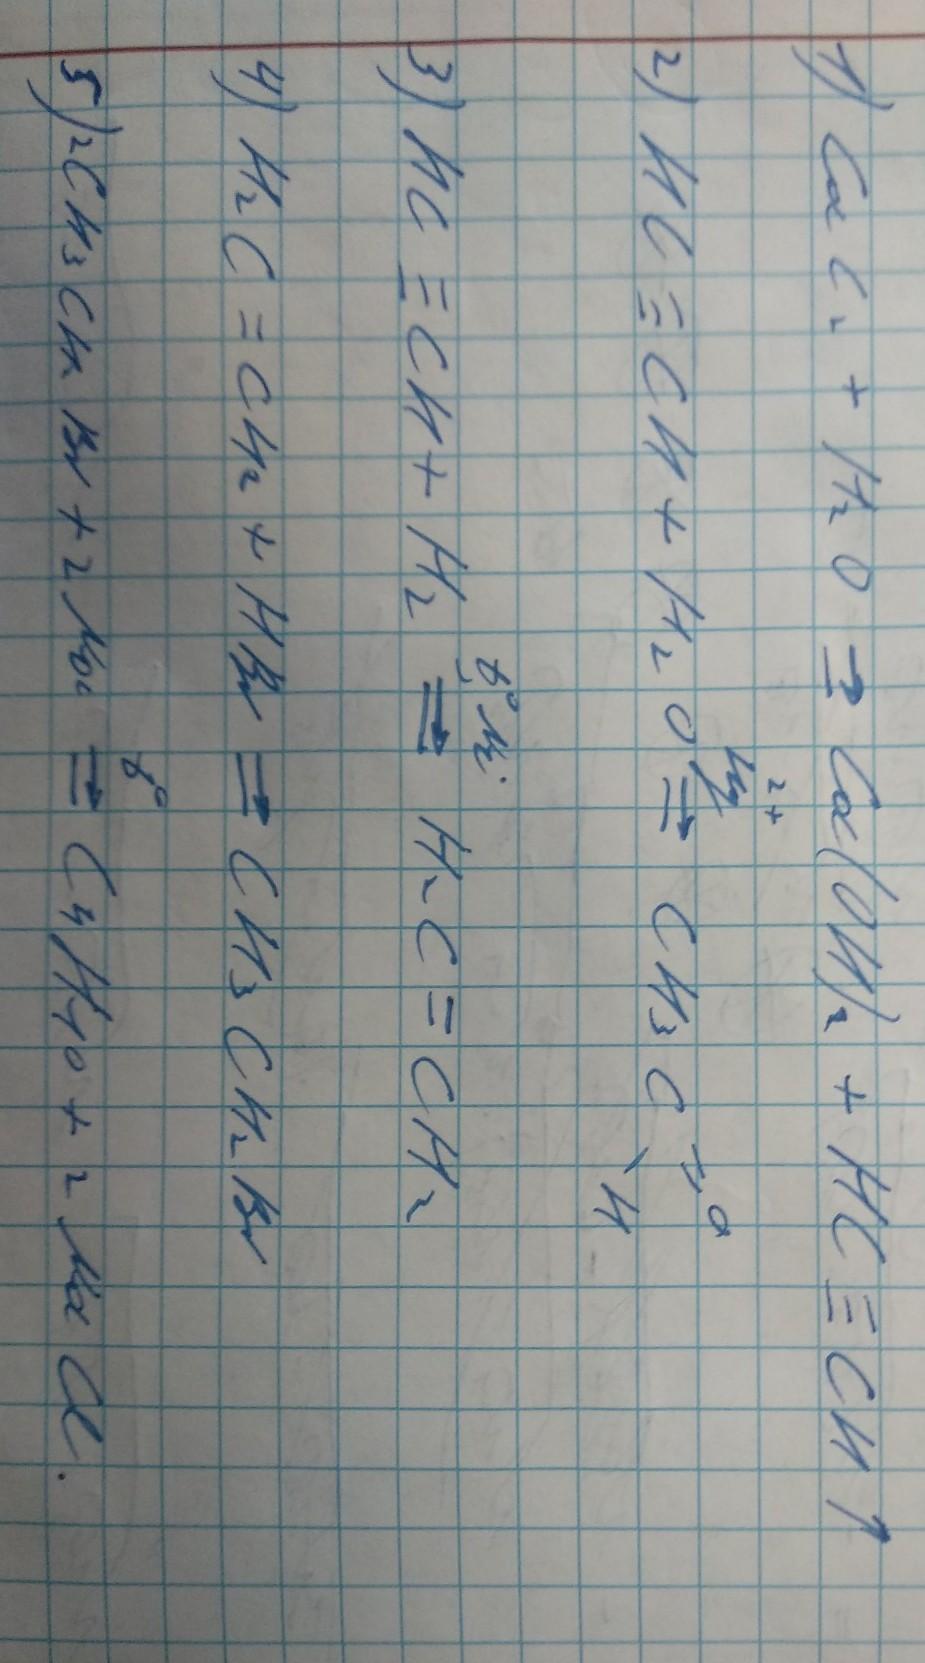 1) CaC₂ + H₂O ⇒ Ca(OH)₂ + HC≡CH↑
2) HC≡CH + H₂O ⇒ Hg²⁺ CH₃C =O \H
3) HC≡CH + H₂ ⇒ t° Ni. H₂C=CH₂
4) H₂C=CH₂ + HBr ⇒ CH₃CH₂Br
5) 2CH₃CH₂Br + 2Na ⇒ t° C₄H₁₀ + 2NaCl.